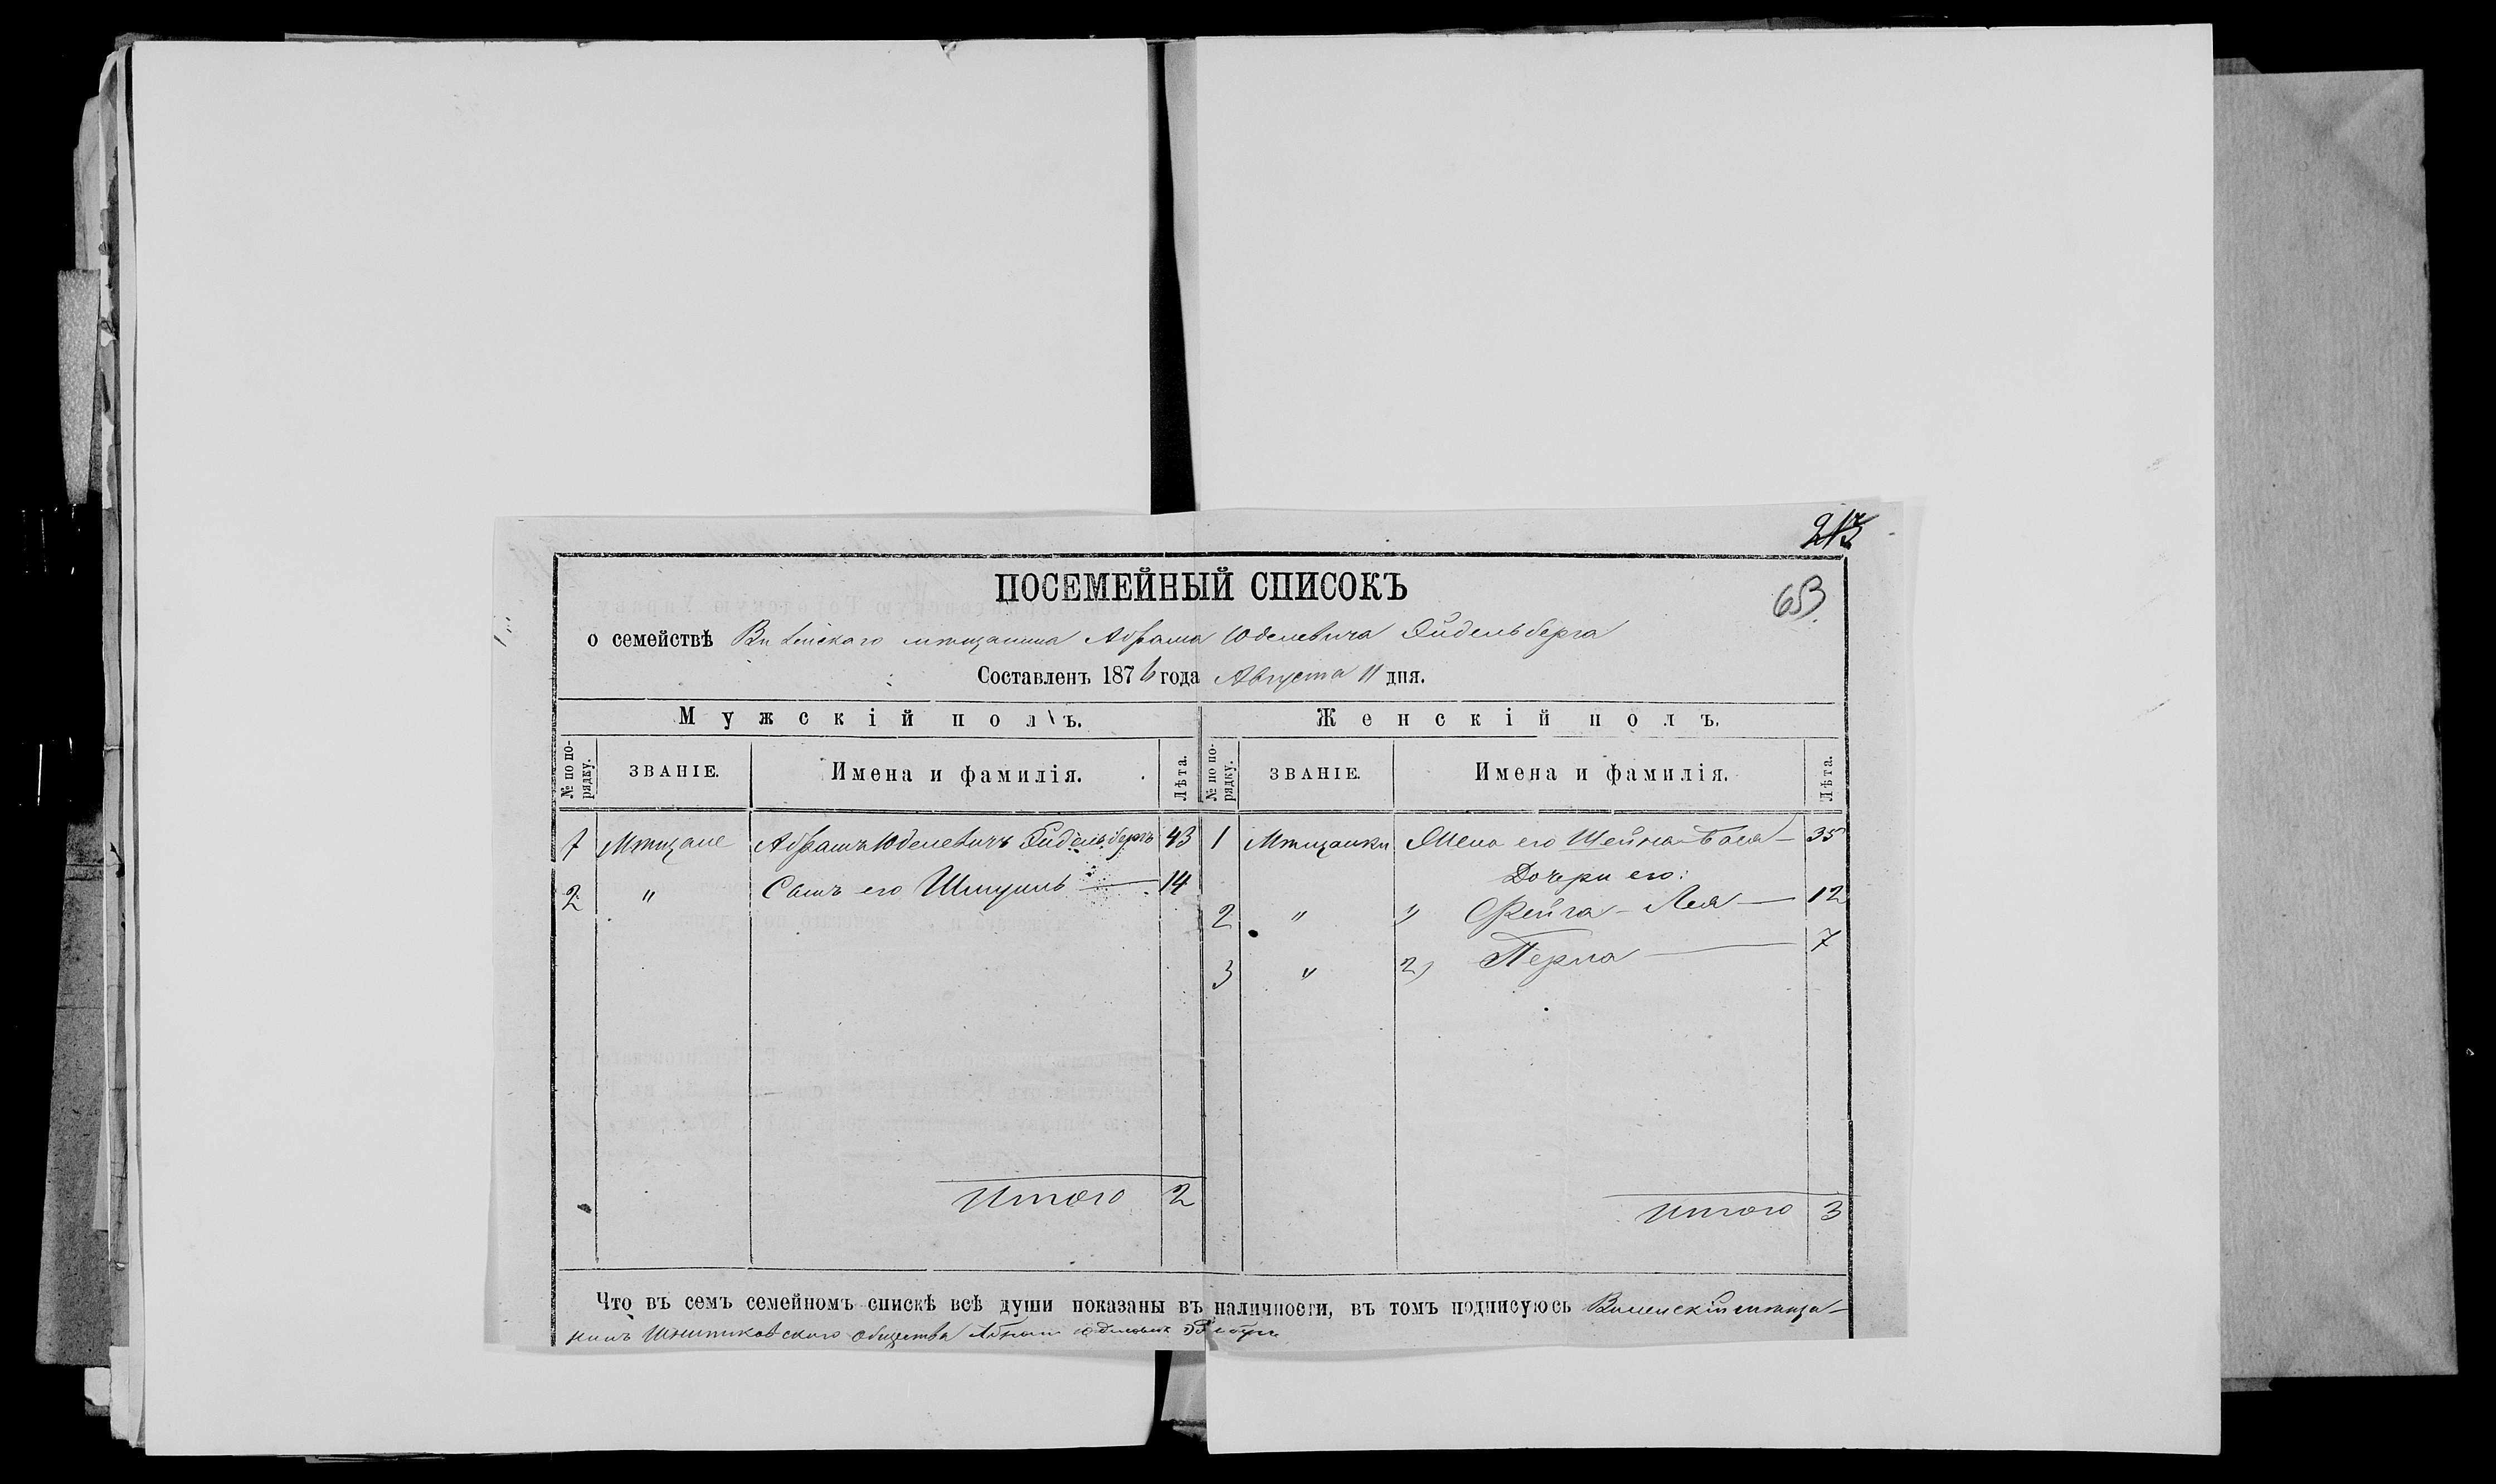 213
ПОСЕМЕЙНЫЙ СПИСОКЪ
653
о семействѣ Виленскаго мѣщанина Абрама Юделевича Эйдельберга
Составленъ 1876 года Августа 11 дня.
Мужскій полъ. Женскій полъ.
№ по порядку. ЗВАНІЕ. Имена и фамилія. Лѣта. № по порядку. ЗВАНІЕ. Имена и фамилія. Лѣта.
1 Мѣщане Абрамъ Юделевичъ Эйдельбергъ 43 1 Мѣщанки Жена его Шейна-Бася 35
Дочери его:
2 " Сынъ его Шмуиль 14 2 " 1) Фейга-Лея 12
3 " 2) Перла 7
Итого 2 Итого 3
Что въ семъ семейномъ спискѣ всѣ души показаны въ наличности, въ томъ подписуюсь Виленскій мѣща-
нинъ Шнипишковскаго общества Абрам